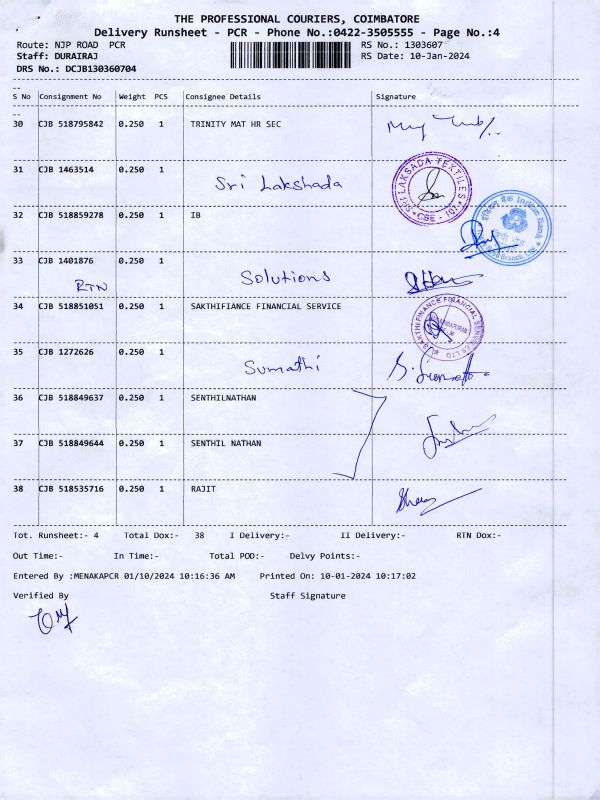 THE PROFESSIONAL COURIERS, COIMBATORE
Delivery Runsheet - PCR - Phone No.:0422-3505555 - Page No.:4
Route: NJP ROAD PCR RS No.: 1303607
Staff: DURAIRAJ RS Date: 10-Jan-2024
DRS No.: DCJB130360704
S No Consignment No Weight PCS Consignee Details Signature
30 CJB 518795842 0.250 1 TRINITY MAT HR SEC
31 CJB 1463514 0.250 1 Sri Lakshada
SRI LAKSADA TEXTILES CBE - 107
32 CJB 518859278 0.250 1 IB
Indian Bank
33 CJB 1401876 0.250 1 Solutions
RTN
34 CJB 518851051 0.250 1 SAKTHIFIANCE FINANCIAL SERVICE
SAKTHIFINANCE FINANCIAL
35 CJB 1272626 0.250 1 Sumathi
36 CJB 518849637 0.250 1 SENTHILNATHAN
37 CJB 518849644 0.250 1 SENTHIL NATHAN
38 CJB 518535716 0.250 1 RAJIT
Tot. Runsheet:- 4 Total Dox:- 38 I Delivery:- II Delivery:- RTN Dox:-
Out Time:- In Time:- Total POD:- Delvy Points:-
Entered By :MENAKAPCR 01/10/2024 10:16:36 AM Printed On: 10-01-2024 10:17:02
Verified By Staff Signature